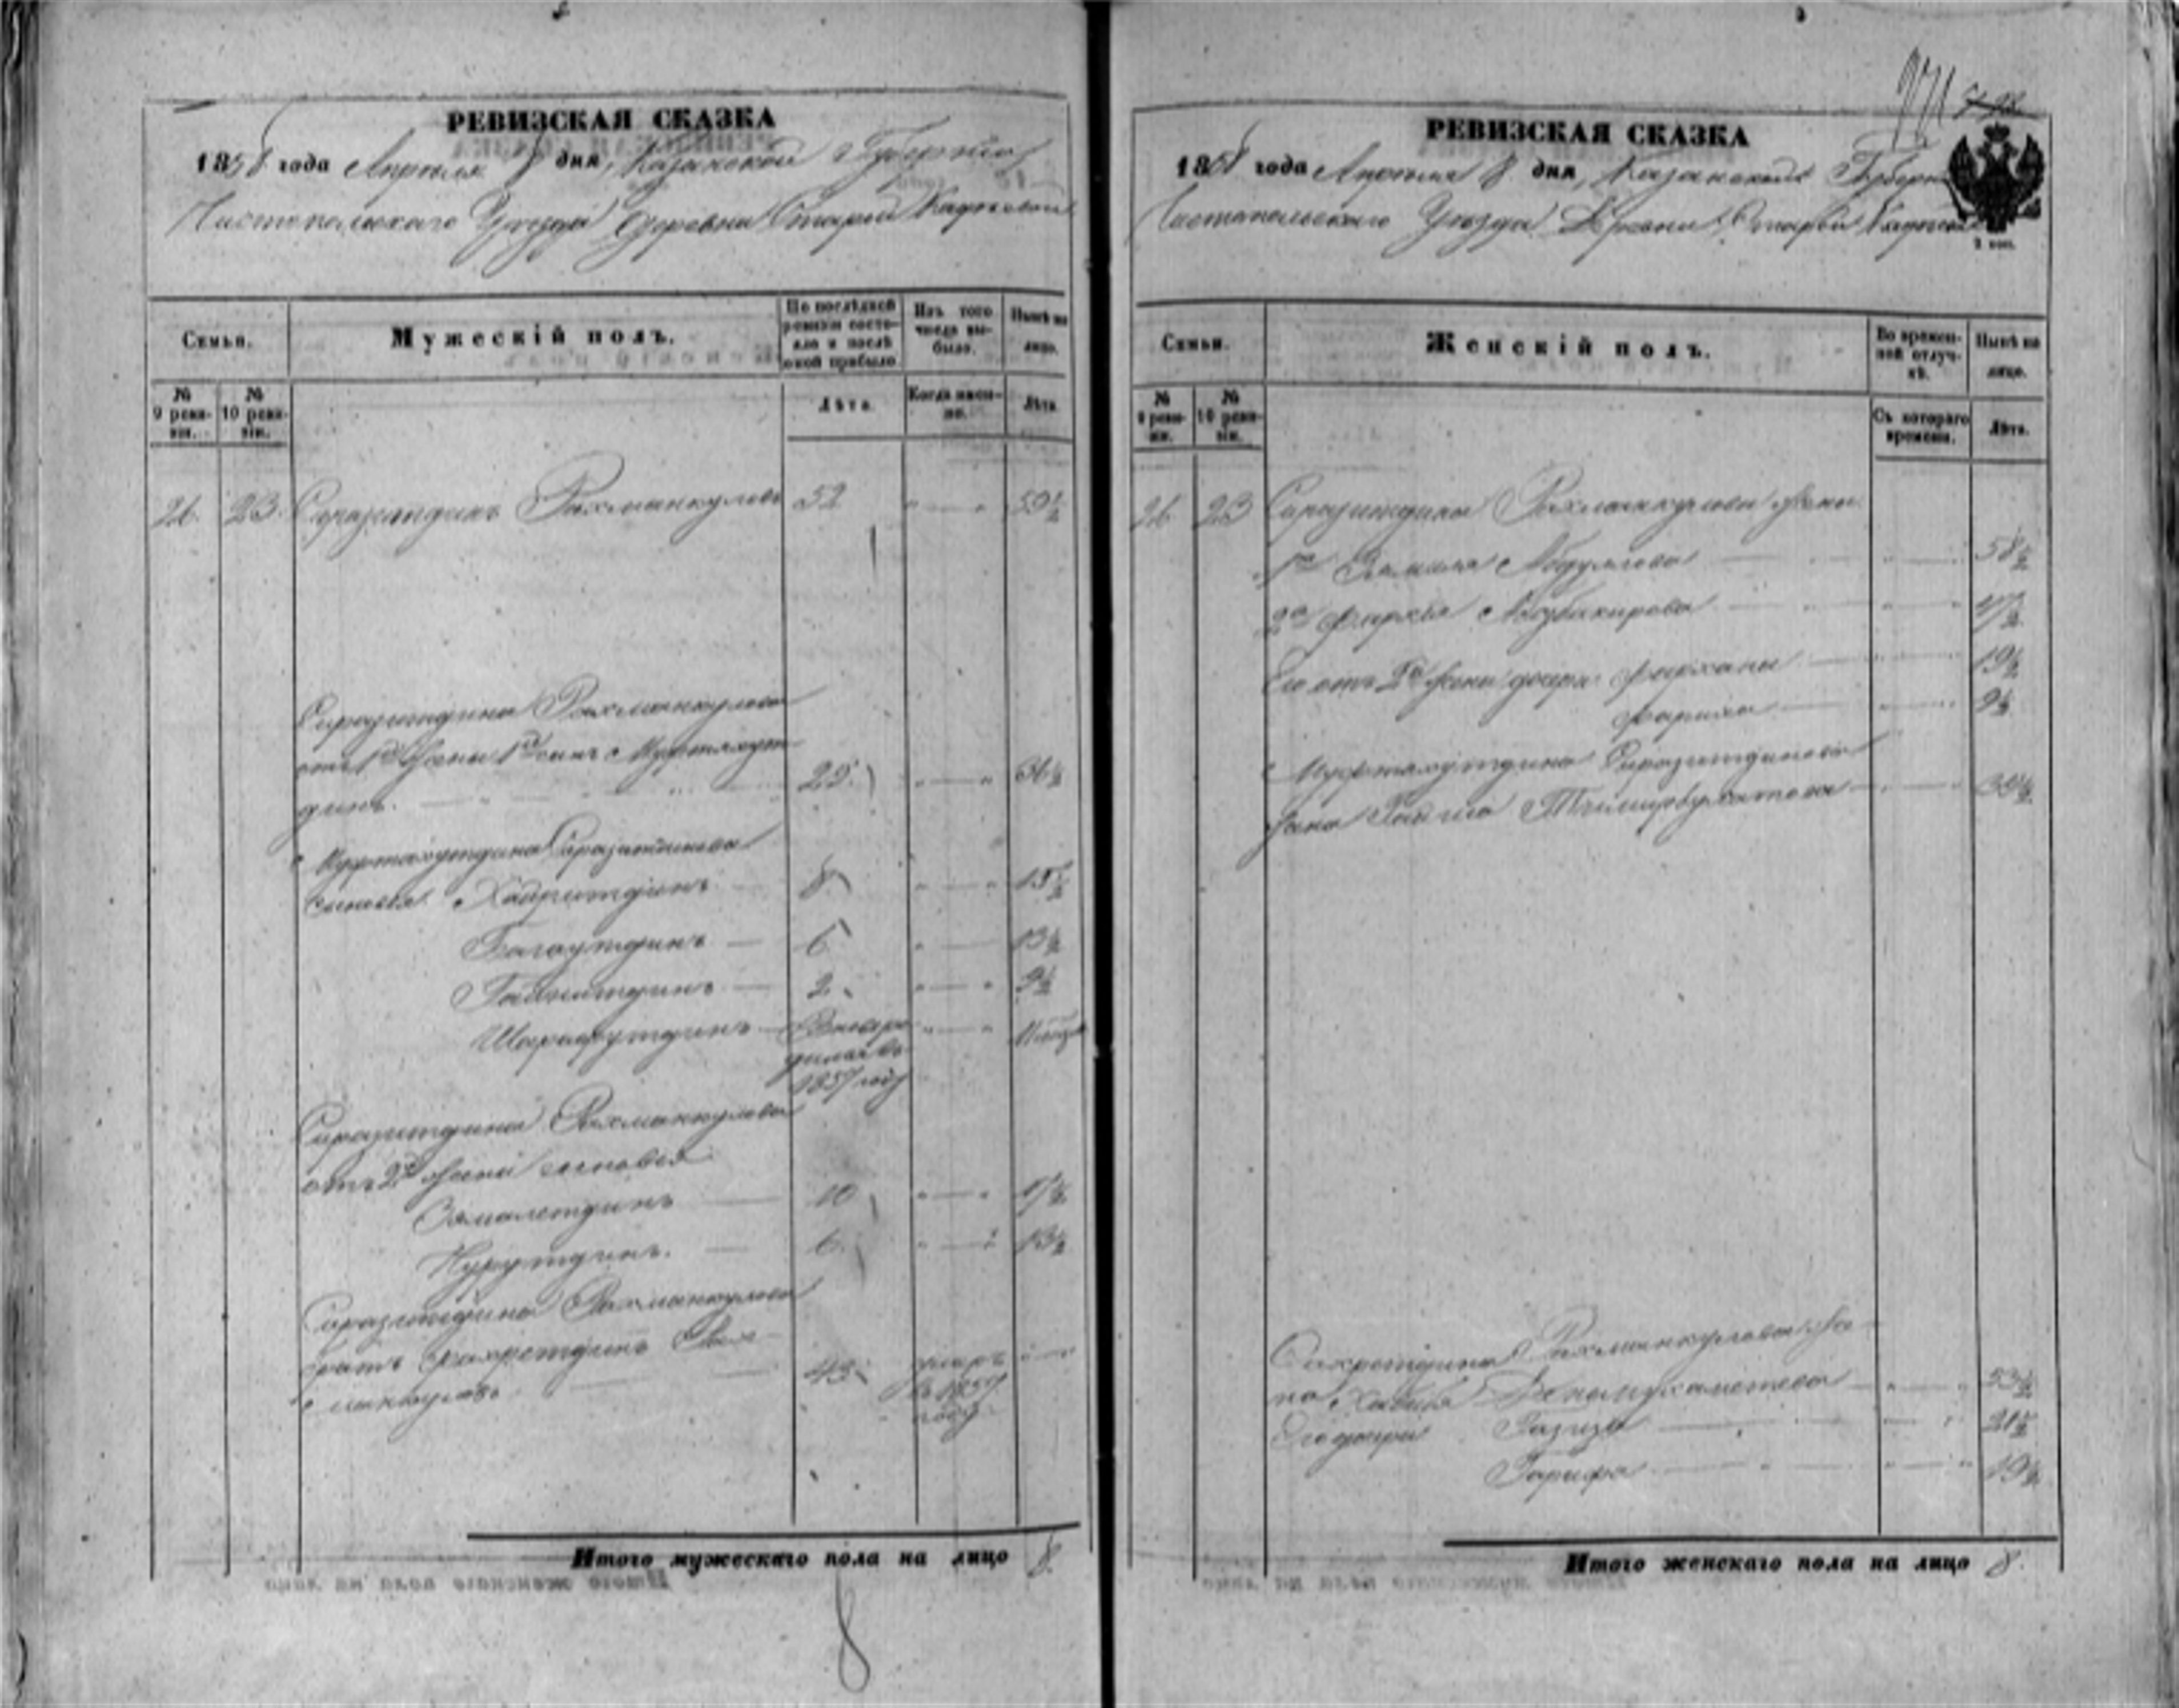 РЕВИЗСКАЯ СКАЗКА
1858 года Апреля 8 дня, Казанской Губернии
Чистопольскаго Уезда Деревни Старой
Семьи.
Мужескій полъ.
По послѣдней ревизіи состояло и послѣ оной прибыло
Изъ того числа выбыло.
Нынѣ на лицо.
№ 9 ревизіи.
№ 10 ревизіи.
Лѣта.
Когда именно.
Лѣта
26 23 Сиразитдинъ Рахманкуловъ 52 59½
Сиразитдина Рахманкулова
отъ 1й жены 1й сынъ Мифтахут-
динъ. 29 36½
Мифтахутдина Сиразитдинова
сыновья Хайритдинъ 8 15½
Багаутдинъ 6 13½
Гайнитдинъ 2 9½
Шарафутдинъ
1857 году
Сиразитдина Рахманкулова
отъ 2й жены сыновья
Зямалетдинъ 10 17½
Нурутдинъ. 6 13½
Сиразитдина Рахманкулова
братъ Фахретдинъ Рах-
манкуловъ 43 умеръ
в 1857
году
Итого мужескаго пола на лицо 8.
8
РЕВИЗСКАЯ СКАЗКА
1858 года Апреля 8 дня, Казанской Губернии
Чистопольскаго Уезда Деревни Старой
Семьи.
Женскій полъ.
Во временной отлучкѣ.
Нынѣ на лицо.
№ 9 ревизіи.
№ 10 ревизіи.
Съ котораго времени.
Лѣта.
26 23 Сиразитдина Рахманкулова жены
1я Зямиля 58½
2я Фархія Абубакирова 47½
Его отъ 2й жены дочери Фархана 19½
9½
Мифтахутдина Сиразитдинова
жена 35½
Фахретдина Рахманкулова же-
на 53½
Его дочери Газиза 21½
Гарифа 19½
Итого женскаго пола на лицо 8.